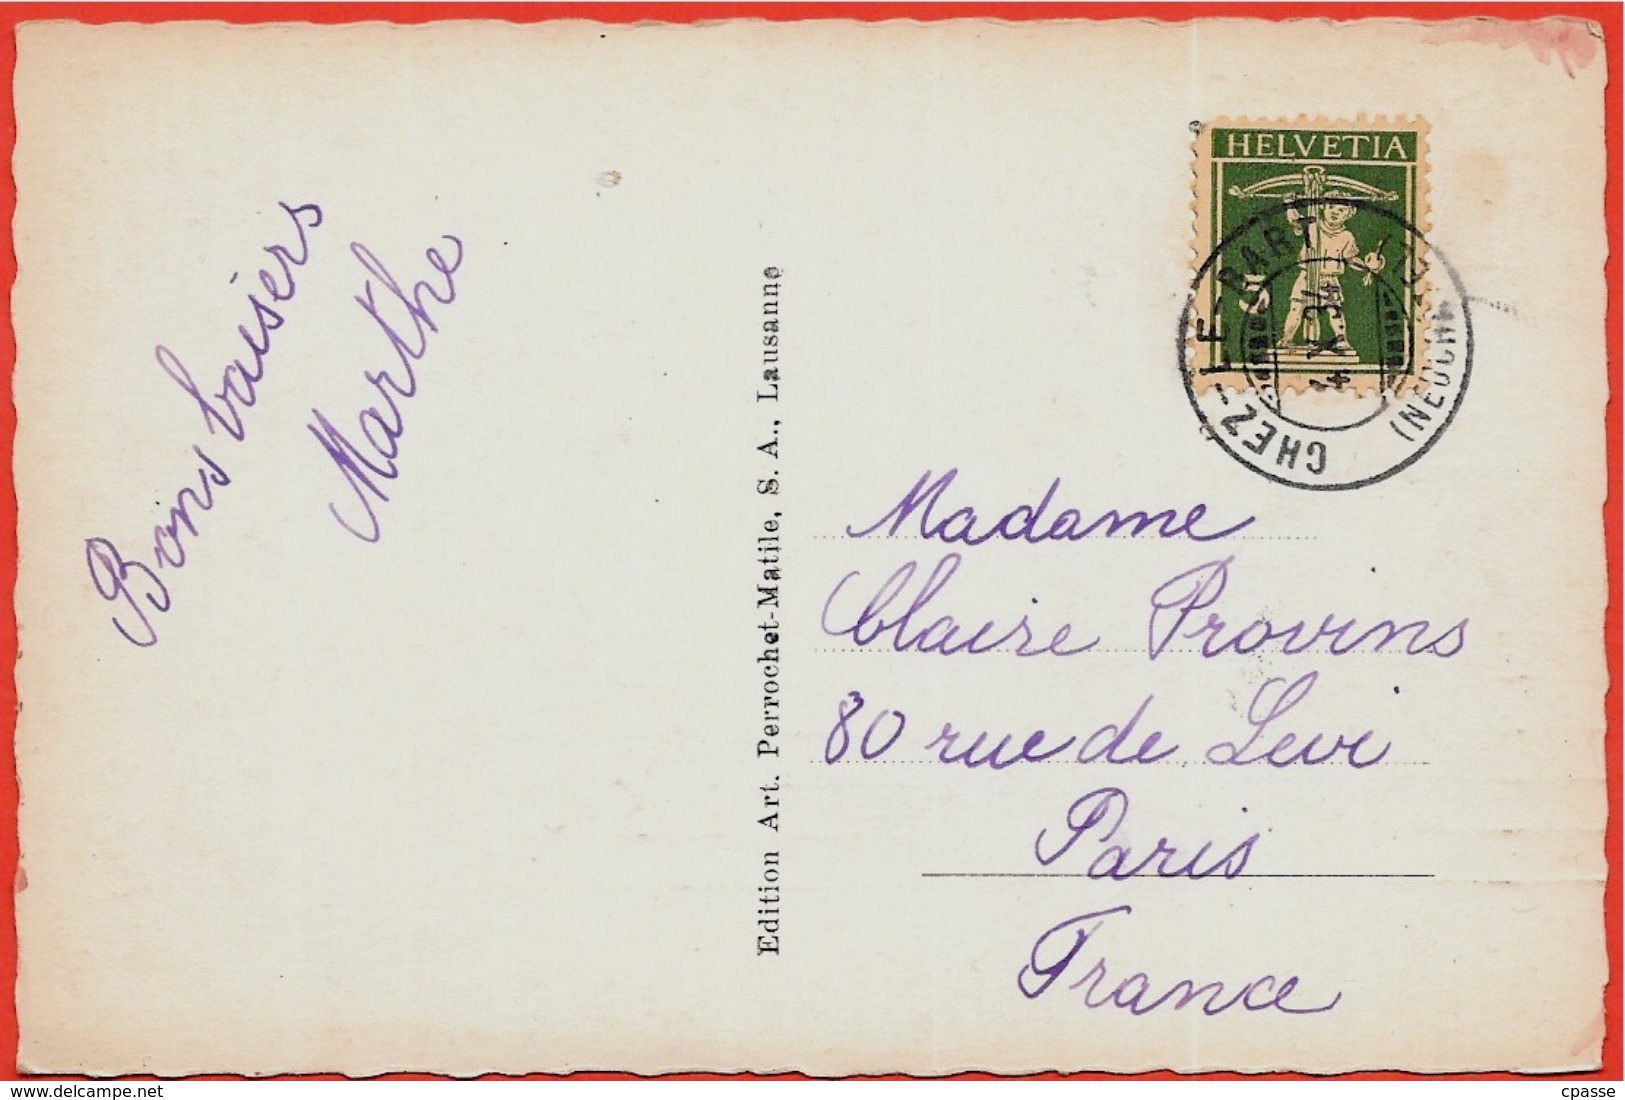 HELVETIA
CHEZ-LE-BART
(NEUCH
X 34
Bons baisers
Marthe
Edition Art. Perrochet-Matile, S. A., Lausanne
Madame
Claire Provins
80 rue de Levi
Paris
France
www.delcampe.net
cpasse